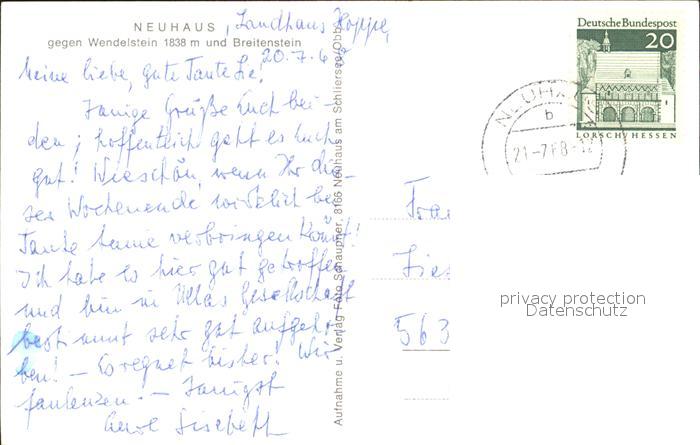 NEUHAUS, Landhaus Hoppe,
gegen Wendelstein 1838 m und Breitenstein
20.7.68
Meine liebe, gute Tante Lie,
Innige Grüße Euch bei-
den; hoffentlich geht es Euch
gut! Wie schön, wenn Ihr die-
ses Wochenende wirklich bei
Tante verbringen könnt!
Ich habe es hier gut getroffen
und bin in Ullas Gesellschaft
sehr gut aufgeho-
ben! – Es regnet bisher! Wir
faulenzen. – Innigst
Eure Lisebeth
Aufnahme u. Verlag Foto Schaupner, 8166 Neuhaus am Schliersee/Obb.
Deutsche Bundespost
20
LORSCH/HESSEN
NEUHA
b
21-7.68-12
Frau
Lies
563
privacy protection
Datenschutz